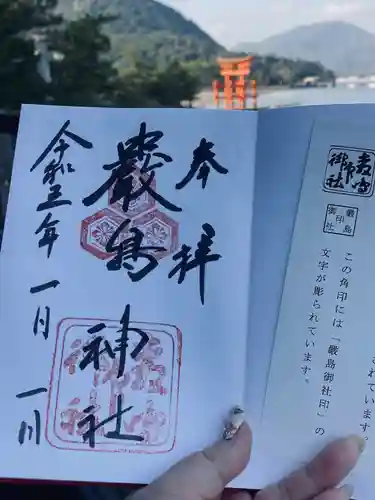 奉拝
嚴島神社
令和三年一月一日
嚴島
御印
社
この角印には「嚴島御社印」の
文字が彫られています。
されています。